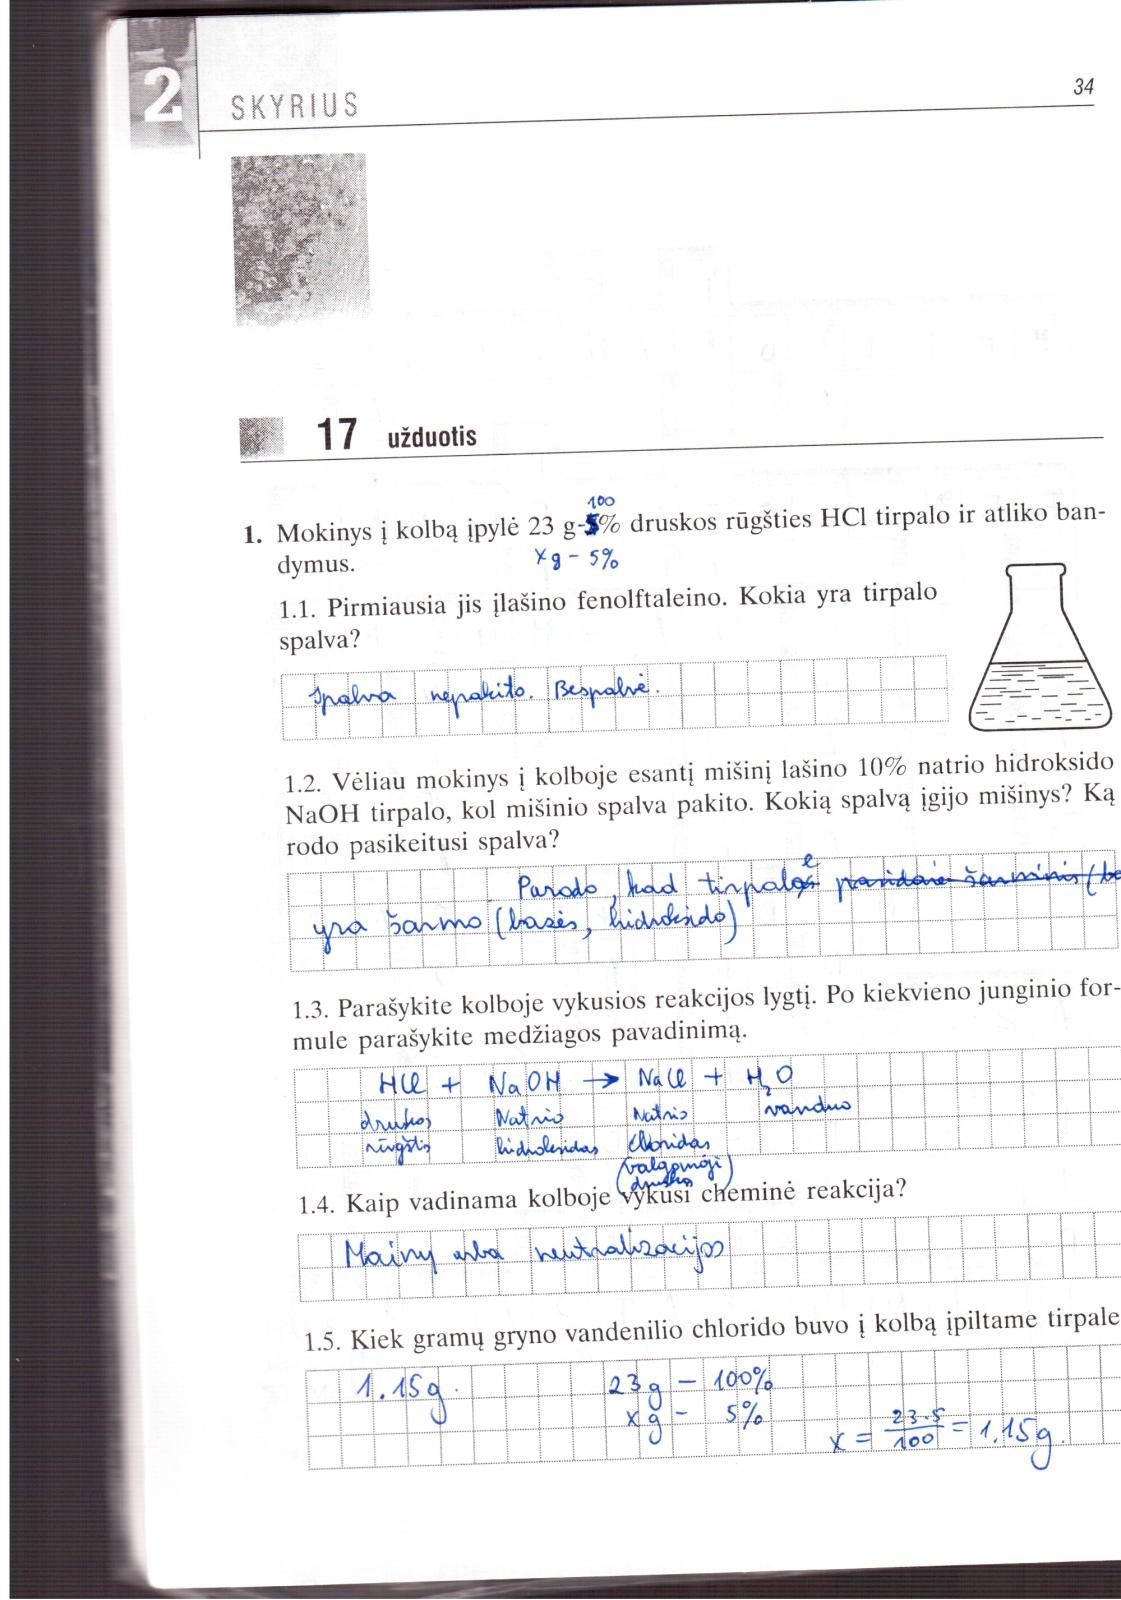 2
SKYRIUS
34
17 užduotis
100
1. Mokinys į kolbą įpylė 23 g 5% druskos rūgšties HCl tirpalo ir atliko ban-
dymus.
x g - 5%
1.1. Pirmiausia jis įlašino fenolftaleino. Kokia yra tirpalo
spalva?
Spalva nepakito. Bespalvė.
1.2. Vėliau mokinys į kolboje esantį mišinį lašino 10% natrio hidroksido
NaOH tirpalo, kol mišinio spalva pakito. Kokią spalvą įgijo mišinys? Ką
rodo pasikeitusi spalva?
Parodo, kad tirpale pasidarė šarminis (ba
yra šarmo (bazės, hidroksido)
1.3. Parašykite kolboje vykusios reakcijos lygtį. Po kiekvieno junginio for-
mule parašykite medžiagos pavadinimą.
HCl + NaOH → NaCl + H₂O
druskos Natrio Natrio vanduo
rūgštis hidroksidas chloridas
(valgomoji
druska)
1.4. Kaip vadinama kolboje vykusi cheminė reakcija?
Mainų arba neutralizacijos
1.5. Kiek gramų gryno vandenilio chlorido buvo į kolbą įpiltame tirpale
1.15g. 23g - 100%
xg - 5%
x = 23·5/100 = 1.15g.